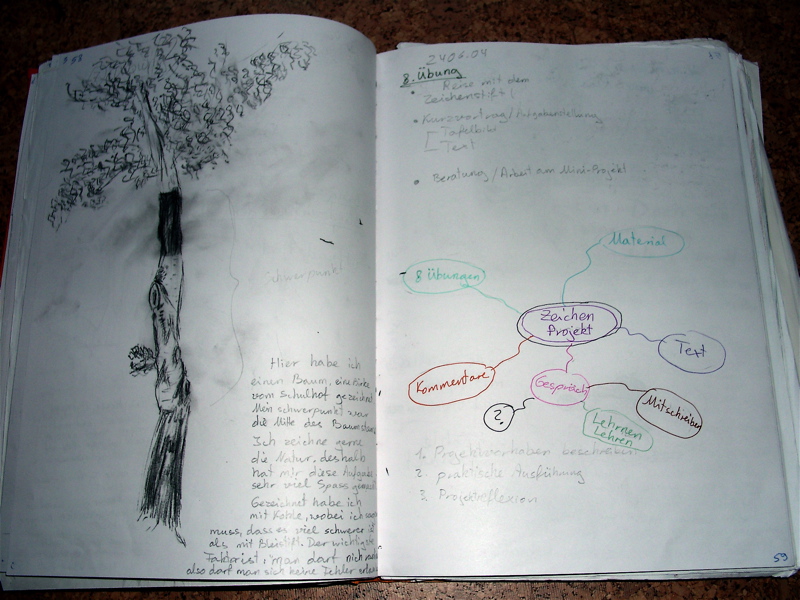 Schwerpunkt
Hier habe ich
einen Baum, eine Birke
vom Schulhof gezeichnet
Mein Schwerpunkt war
die Mitte des
Ich zeichne gerne
die Natur, deshalb
hat mir diese Aufgabe
sehr viel Spass
Gezeichnet habe ich
mit Kohle, wobei ich
muss, dass es viel schwerer
als mit Bleistift. Der wichtigste
Faktor ist: man darf nicht
also darf man sich keine Fehler
8. Übung
Reise mit dem
Zeichenstift
Kurzvortrag/Aufgabenstellung
Tafelbild
Text
Beratung/Arbeit am Mini-Projekt
Material
8 Übungen
Zeichen
Projekt
Text
Kommentare
Gespräch
Mitschreiben
?
Lehrnen
Lehren
1. Projektvorhaben beschreiben
2. praktische Ausführung
3. Projektreflexion
59